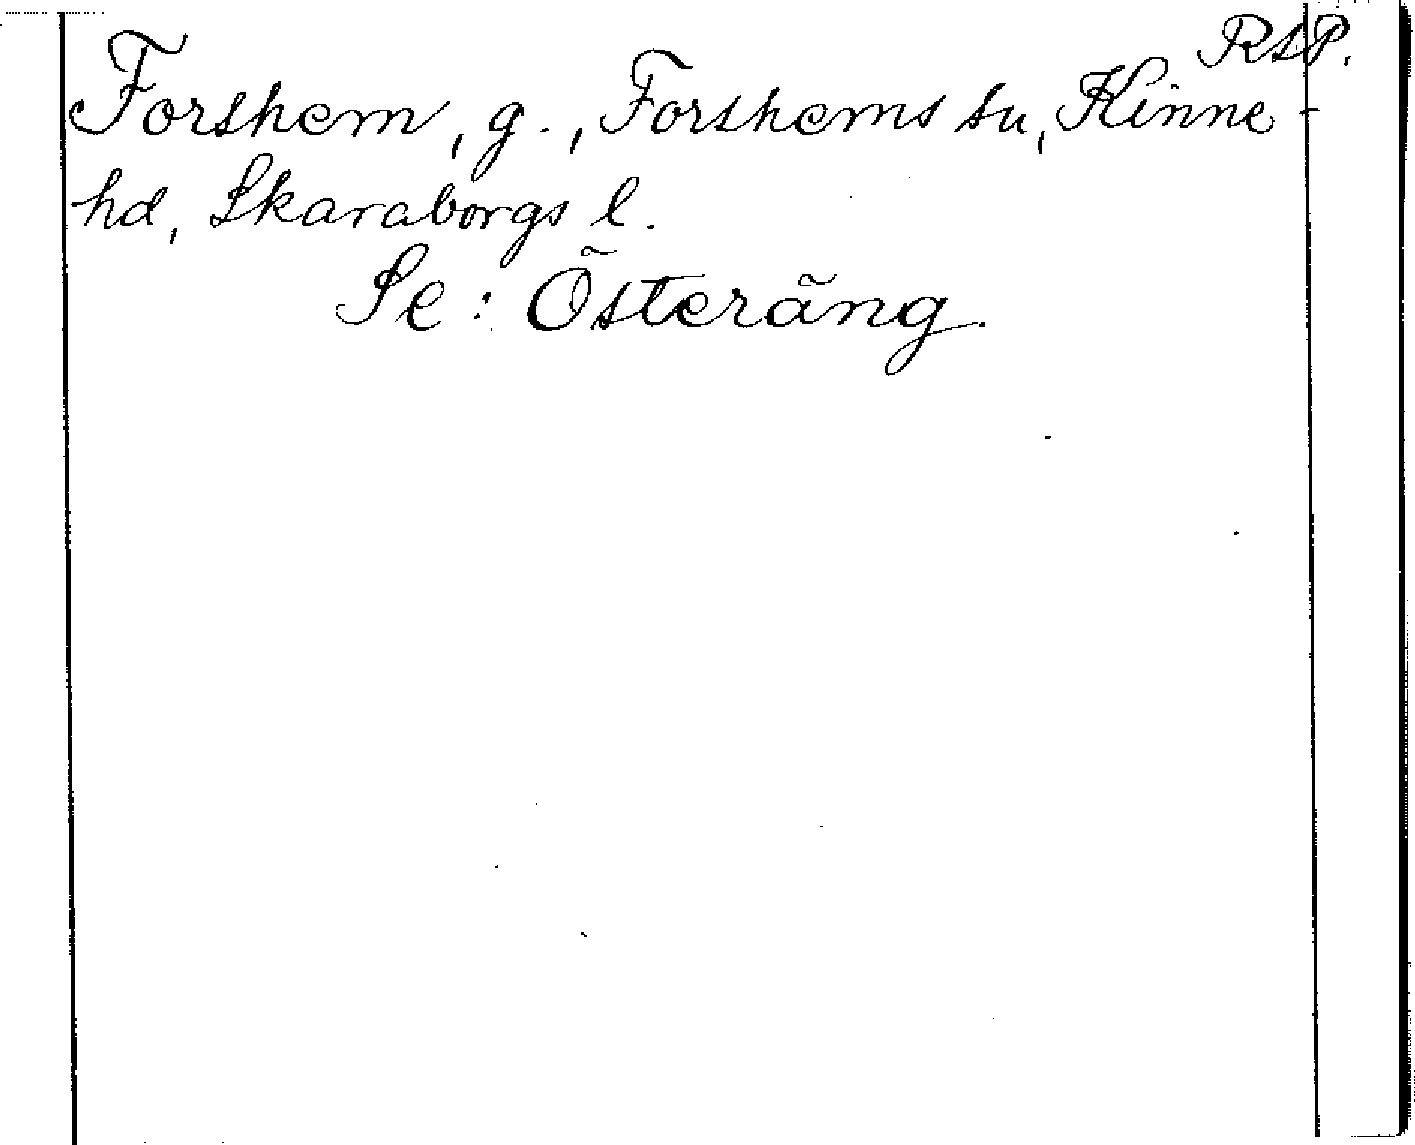 RAP.
Forshem, g., Forshems sn, Kinne-
hd, Skaraborgs l.
Se: Österäng.